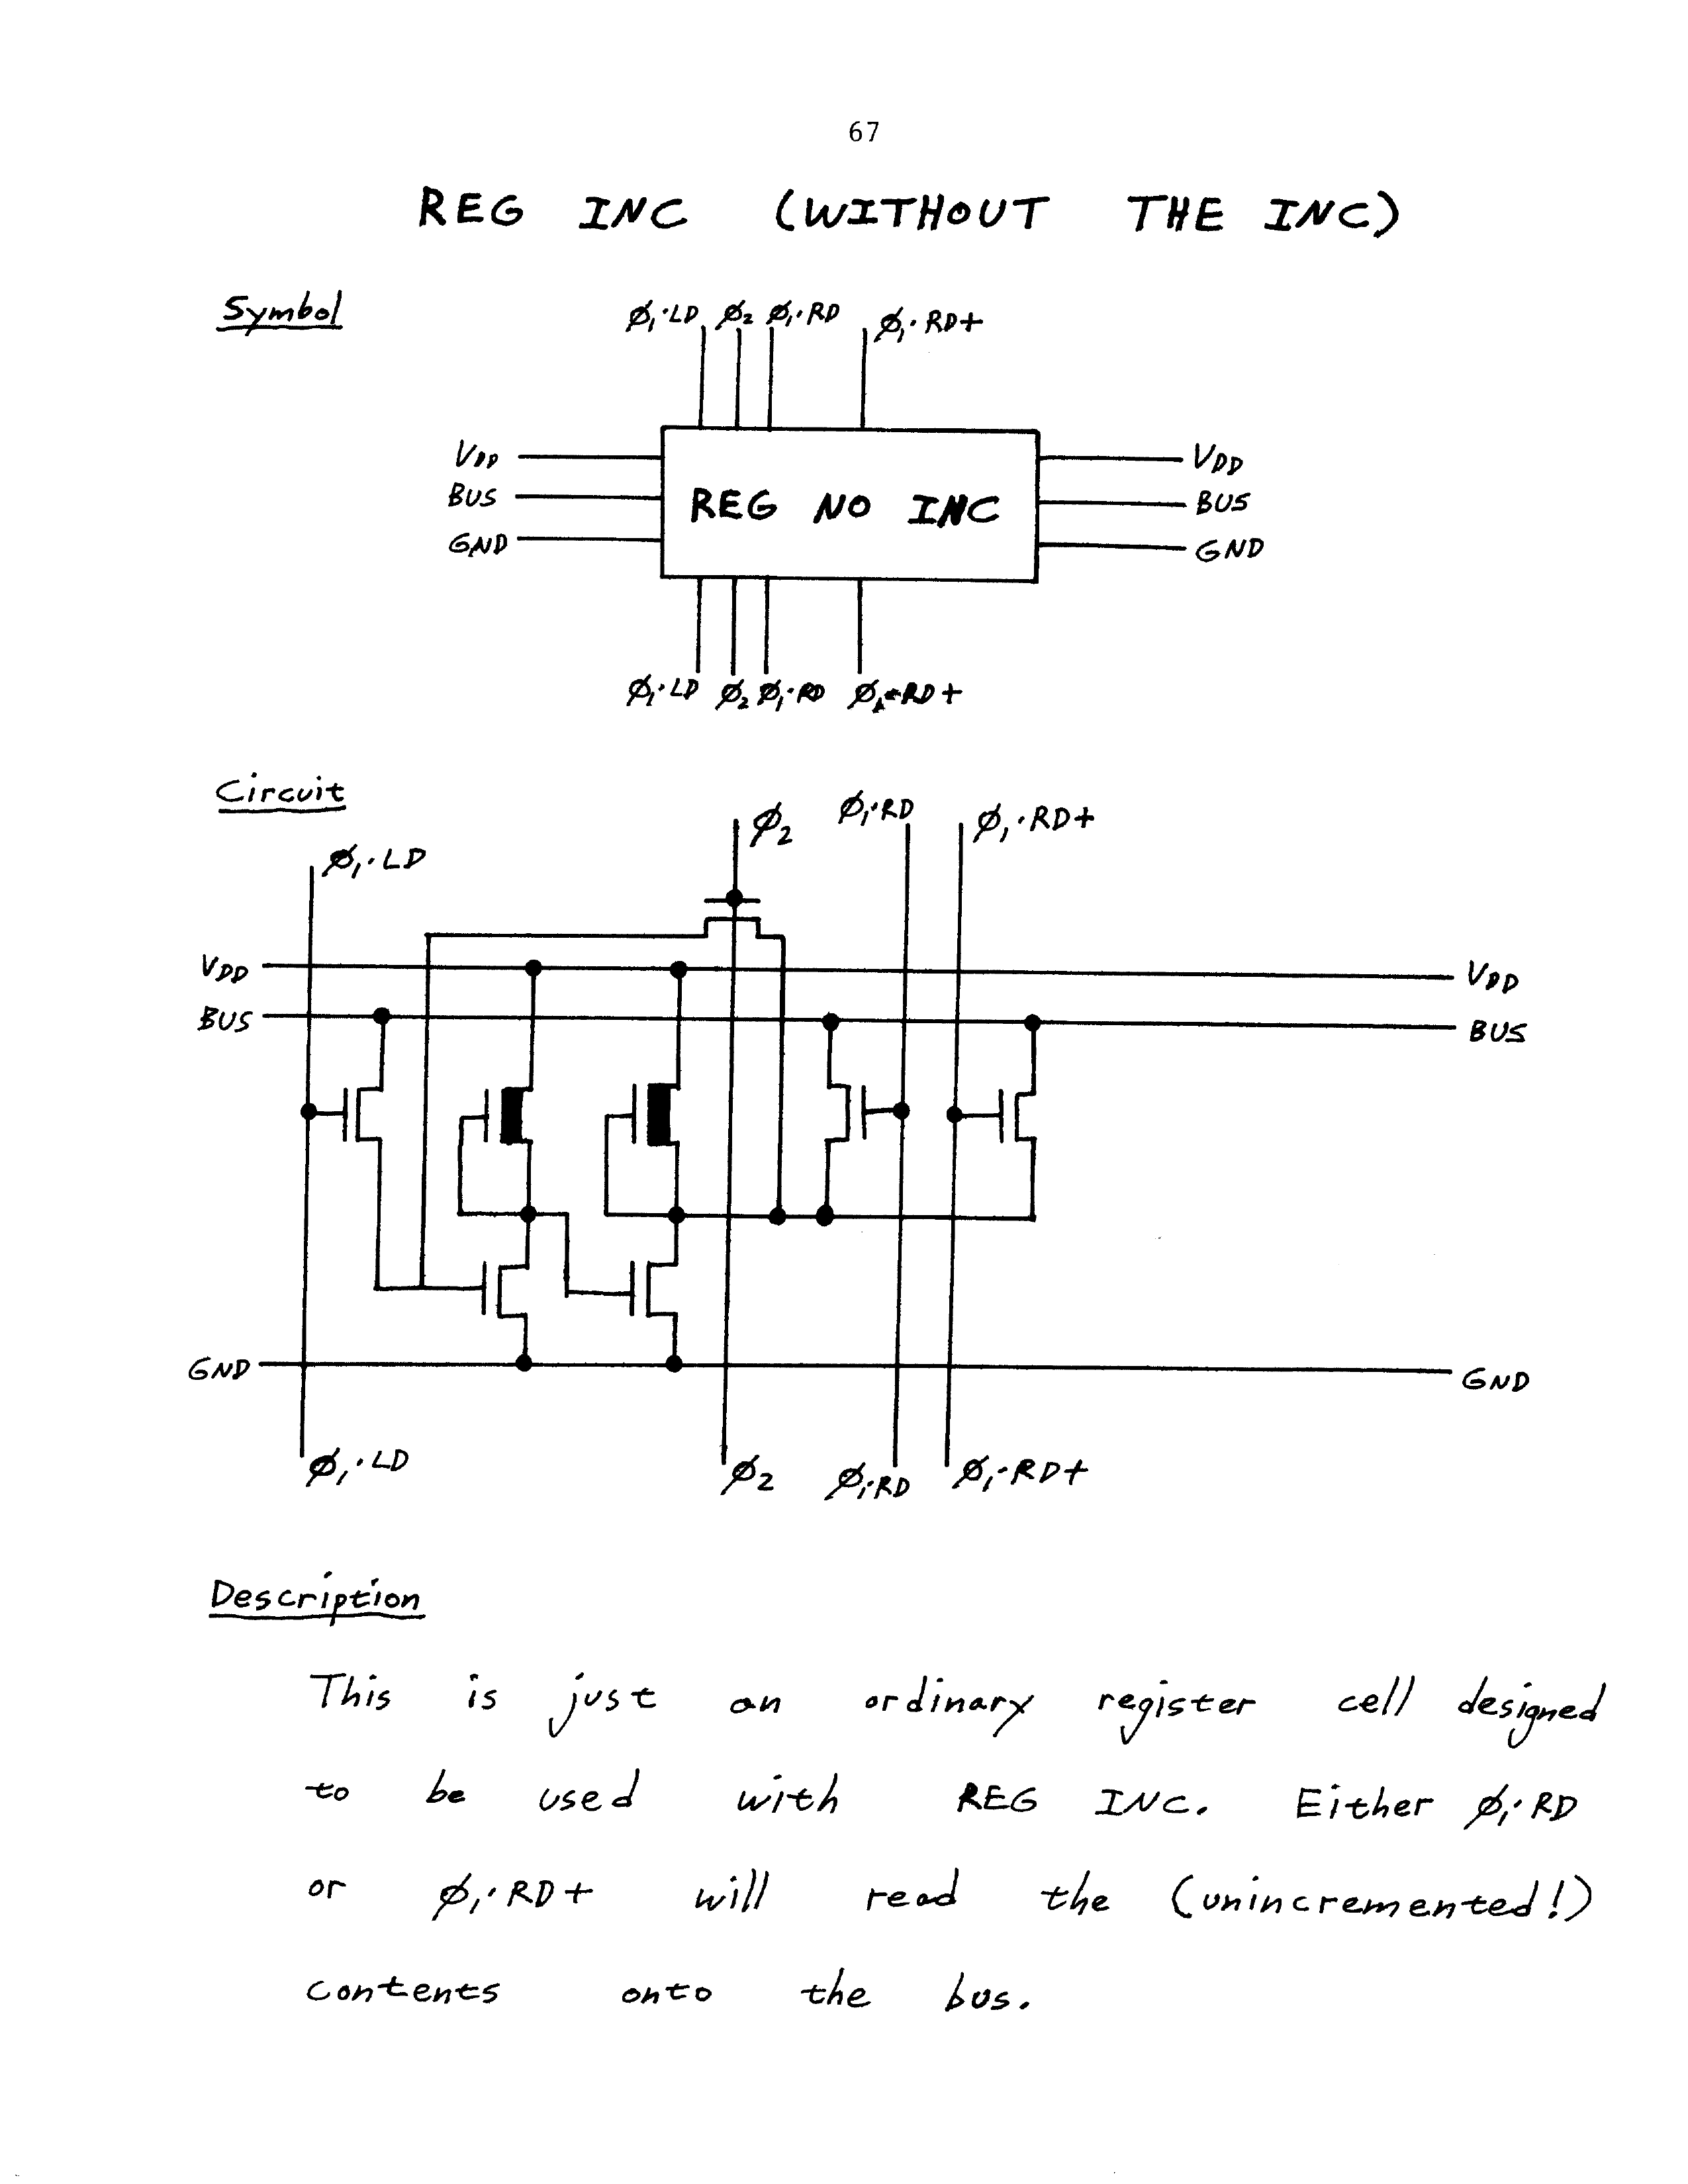 67
REG INC (WITHOUT THE INC)
Symbol
Ø₁·LD Ø₂ Ø₁·RD Ø₁·RD+
VDD VDD
BUS REG NO INC BUS
GND GND
Ø₁·LD Ø₂ Ø₁·RD Ø₁·RD+
Circuit
Ø₁·LD Ø₂ Ø₁·RD Ø₁·RD+
VDD VDD
BUS BUS
GND GND
Ø₁·LD Ø₂ Ø₁·RD Ø₁·RD+
Description
This is just an ordinary register cell designed
to be used with REG INC. Either Ø₁·RD
or Ø₁·RD+ will read the (unincremented!)
contents onto the bus.